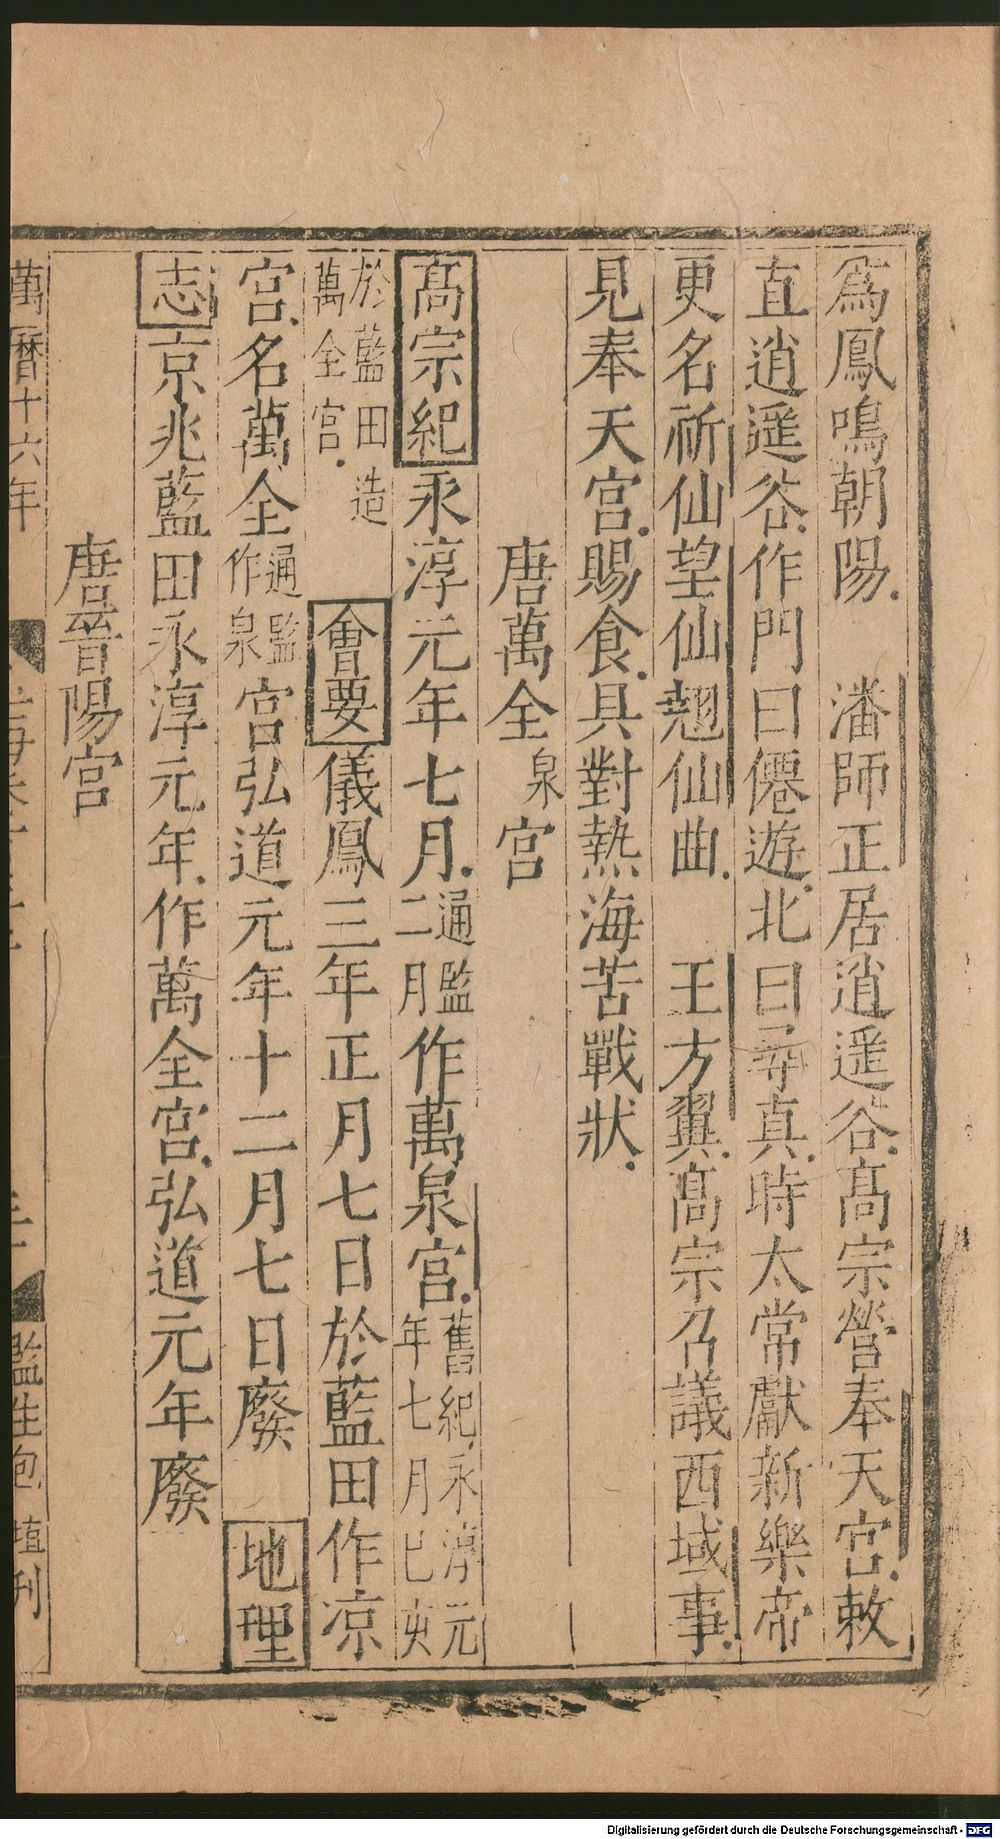 爲鳳鳴朝陽　潘師正居逍遥谷髙宗營奉天宫敕
直逍遥谷作門曰僊遊北曰尋真時太常獻新樂帝
更名祈仙望仙翹仙曲　王方翼髙宗召議西域事
見奉天宫賜食具對熱海苦戰狀
唐萬全泉宫
髙宗紀永淳元年七月通監二月作萬泉宫舊紀永淳元年七月巳亥
於藍田造萬全宫　會要儀鳳三年正月七日於藍田作凉
宫名萬全通監作泉宫弘道元年十二月七日廢　地理
志京兆藍田永淳元年作萬全宫弘道元年廢
唐晉陽宫
萬曆十六年
監生包㨁刊
Digitalisierung gefördert durch die Deutsche Forschungsgemeinschaft - DFG